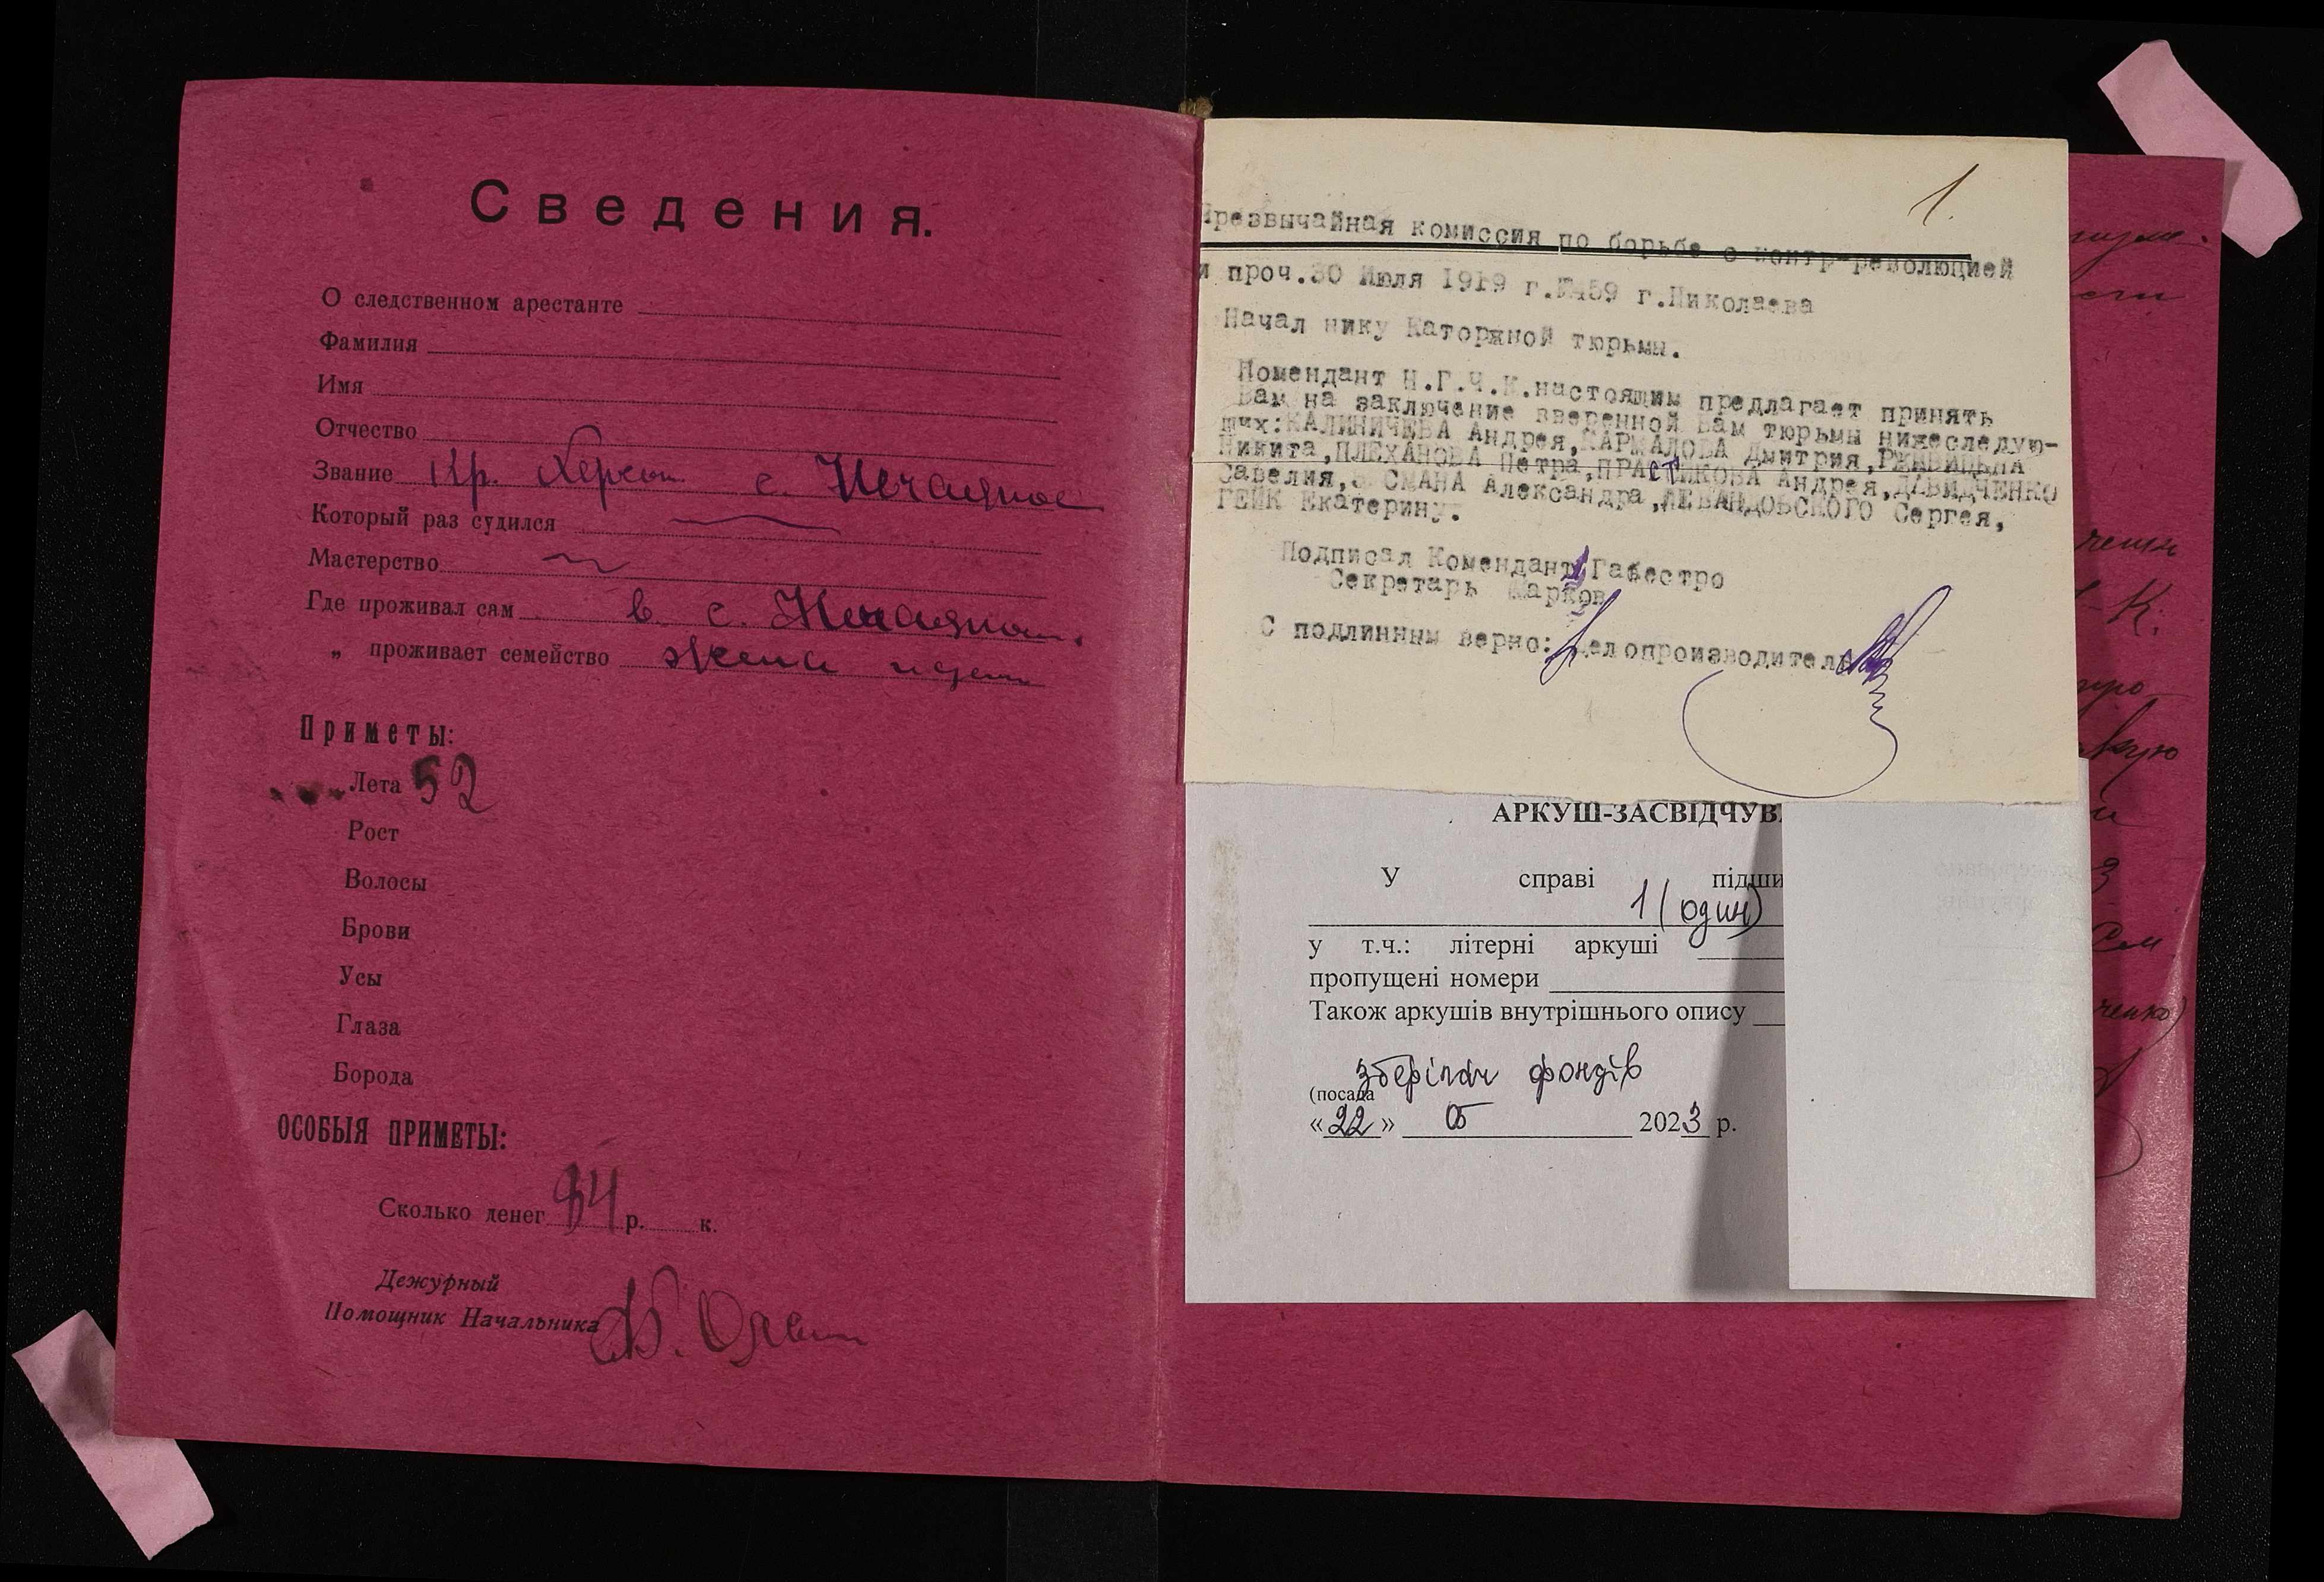 Сведения.
О следственном арестанте
Фамилия
Имя
Отчество
Звание Кр. Херсон с. Нечаяное
Который раз судился
Мастерство
Где проживал сам в с. Нечаяном.
„ проживает семейство жена
Приметы:
Лета 52
Рост
Волосы
Брови
Усы
Глаза
Борода
ОСОБЫЯ ПРИМЕТЫ:
Сколько денег 94 р. к.
Дежурный
Помощник Начальника
1.
Чрезвычайная комиссия по борьбе с контр-революцией
и проч.30 Июля 1919 г.№459 г.Николаева
Начал нику Каторжной тюрьмы.
Помендант Н.Г.Ч.К.настоящим предлагает принять
Вам на заключение вверенной Вам тюрьмы нижеследую-
щих:КАЛИНИЧЕВА Андрея,КАРМАЛОВА Дмитрия,
Никита,ПЛЕХАНОВА Петра,ПРАСТИКОВА Андрея,ДАВИДЧЕНКО
Савелия, Александра,ЛЕВАНДОВСКОГО Сергея,
ГЕЙК Екатерину.
Подписал Комендант Габестро
Секретарь Марков
С подлинным верно: Делопроизводитель
АРКУШ-ЗАСВІДЧУВ
У справі підши
1 (один)
у т.ч.: літерні аркуші
пропущені номери
Також аркушів внутрішнього опису
зберігач фондів
(посада
«22» 05 2023 р.